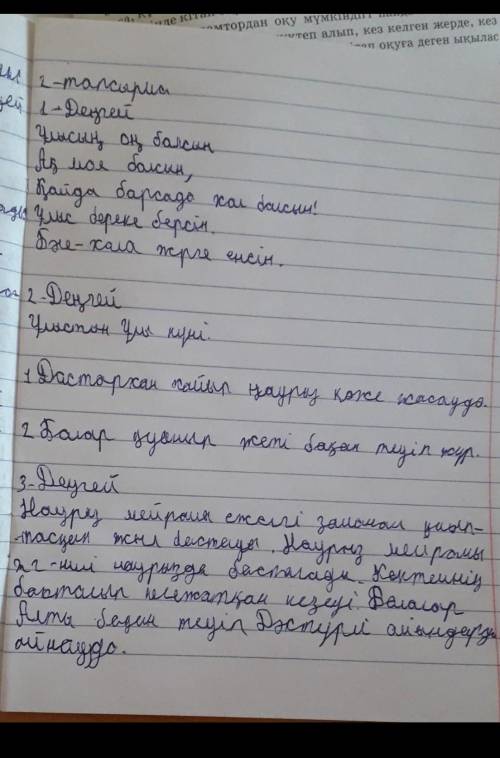 мтордан оқу мүмкіндігі
алып, кез келген жерде, кез
оқуға деген ықылас
2-тапсырма
1-Деңгей
Ұлысың оң болсын
Ақ мол болсын,
Қайда барсада хол болсын!
Ұлыс береке берсін.
Бәле-хала жерге енсін.
2-Деңгей
Ұлыстың Ұлы күні.
1 Дастархан жайып наурыз көже жасауда.
2 Балар қуанып жеті бақан теуіп жүр.
3-Деңгей
Наурыз мейрамы ежелгі заманнан
жыл басталуы. Наурыз мейрамы
наурызда басталады. Көктемнің
кезеңі. Балалар
Алты бақан теуіп Дәстүрлі ойындарды
ойнауда.